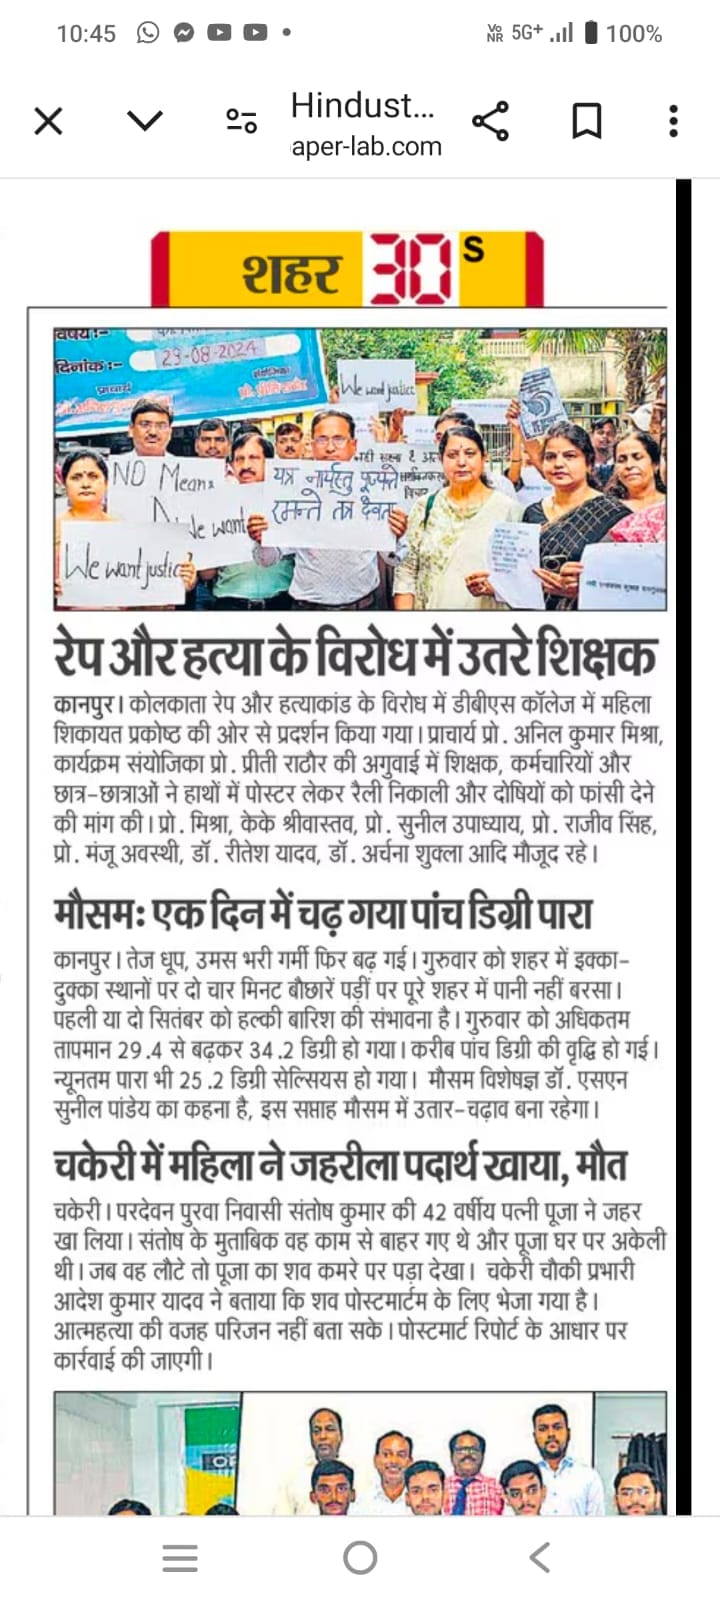 10:45
VoNR 5G+ 100%
Hindust...
aper-lab.com
शहर 30 S
विषय :-
दिनांक :- 29-08-2024
प्राचार्य
We want justice
NO Means
यत्र नार्यस्तु पूज्यते
रमन्ते तत्र देवता
We want
We want justice
रेप और हत्या के विरोध में उतरे शिक्षक
कानपुर। कोलकाता रेप और हत्याकांड के विरोध में डीबीएस कॉलेज में महिला
शिकायत प्रकोष्ट की ओर से प्रदर्शन किया गया। प्राचार्य प्रो. अनिल कुमार मिश्रा,
कार्यक्रम संयोजिका प्रो. प्रीती राठौर की अगुवाई में शिक्षक, कर्मचारियों और
छात्र-छात्राओं ने हाथों में पोस्टर लेकर रैली निकाली और दोषियों को फांसी देने
की मांग की। प्रो. मिश्रा, केके श्रीवास्तव, प्रो. सुनील उपाध्याय, प्रो. राजीव सिंह,
प्रो. मंजू अवस्थी, डॉ. रीतेश यादव, डॉ. अर्चना शुक्ला आदि मौजूद रहे।
मौसम: एक दिन में चढ़ गया पांच डिग्री पारा
कानपुर। तेज धूप, उमस भरी गर्मी फिर बढ़ गई। गुरुवार को शहर में इक्का-
दुक्का स्थानों पर दो चार मिनट बौछारें पड़ीं पर पूरे शहर में पानी नहीं बरसा।
पहली या दो सितंबर को हल्की बारिश की संभावना है। गुरुवार को अधिकतम
तापमान 29.4 से बढ़कर 34.2 डिग्री हो गया। करीब पांच डिग्री की वृद्धि हो गई।
न्यूनतम पारा भी 25.2 डिग्री सेल्सियस हो गया। मौसम विशेषज्ञ डॉ. एसएन
सुनील पांडेय का कहना है, इस सप्ताह मौसम में उतार-चढ़ाव बना रहेगा।
चकेरी में महिला ने जहरीला पदार्थ खाया, मौत
चकेरी। परदेवन पुरवा निवासी संतोष कुमार की 42 वर्षीय पत्नी पूजा ने जहर
खा लिया। संतोष के मुताबिक वह काम से बाहर गए थे और पूजा घर पर अकेली
थी। जब वह लौटे तो पूजा का शव कमरे पर पड़ा देखा। चकेरी चौकी प्रभारी
आदेश कुमार यादव ने बताया कि शव पोस्टमार्टम के लिए भेजा गया है।
आत्महत्या की वजह परिजन नहीं बता सके। पोस्टमार्ट रिपोर्ट के आधार पर
कार्रवाई की जाएगी।